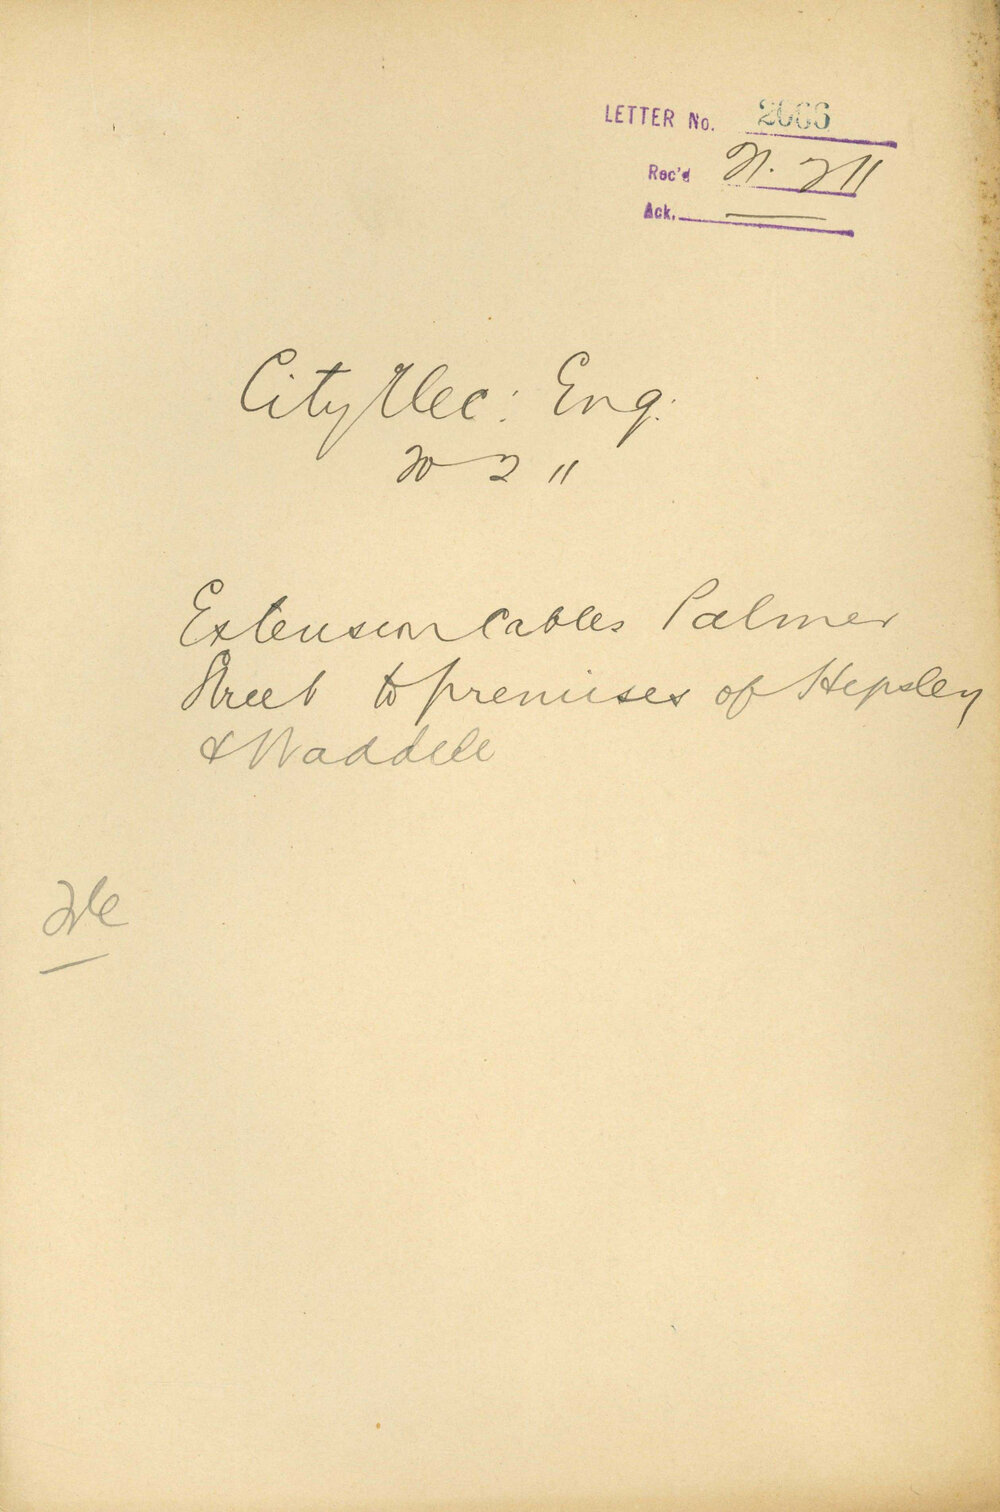 LETTER No. 2066
Rec'd 21. 2 11
Ack.
City Elec: Eng:
20 2 11
Extension Cables Palmer
Street to premises of Hepsley
& Waddell